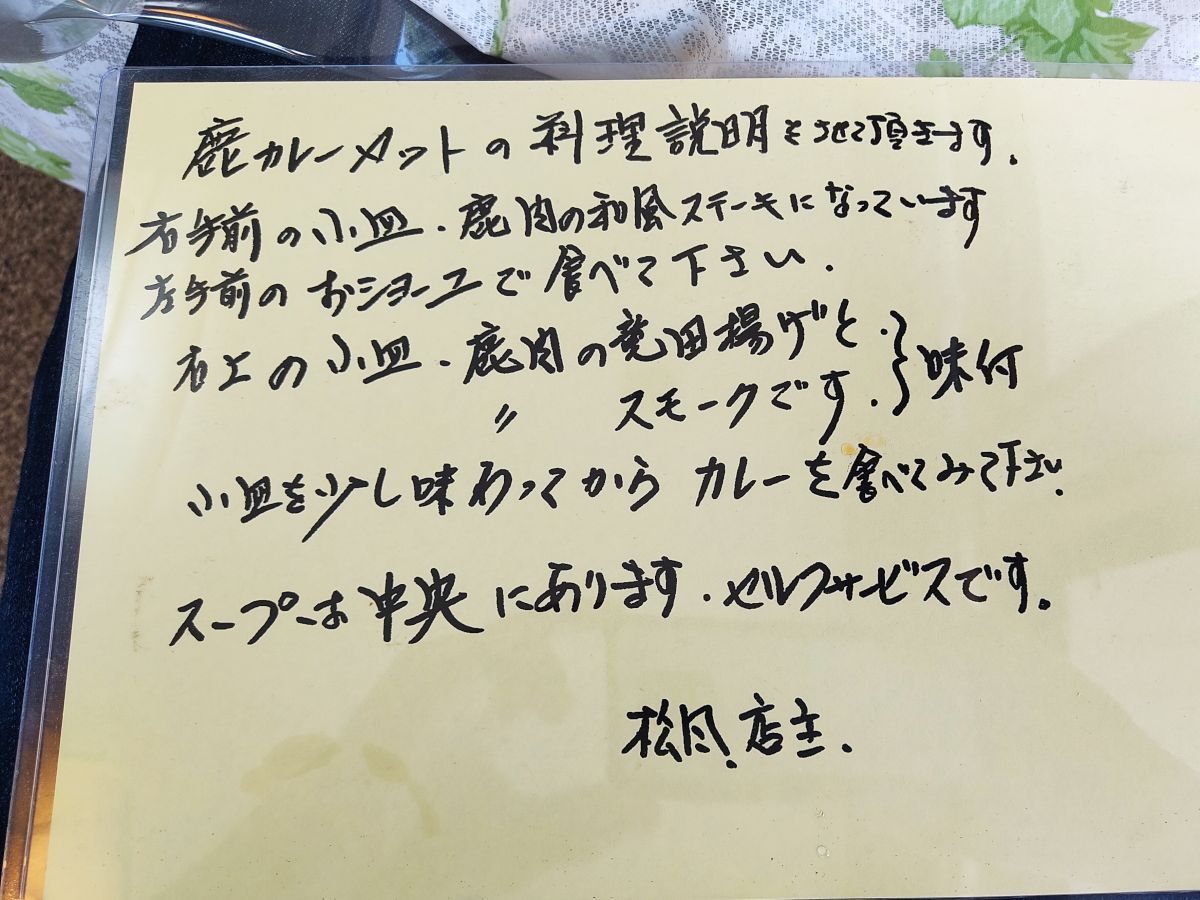 鹿カレーメットの料理説明をさせて頂きます.
右手前の小皿.鹿肉の和風ステーキになっています
左手前のおショーユで食べて下さい.
右上の小皿.鹿肉の竜田揚げと.
〃 スモークです. } 味付
小皿を少し味わってからカレーを食べてみて下さい.
スープは中央にあります.セルフサービスです。
松風.店主.